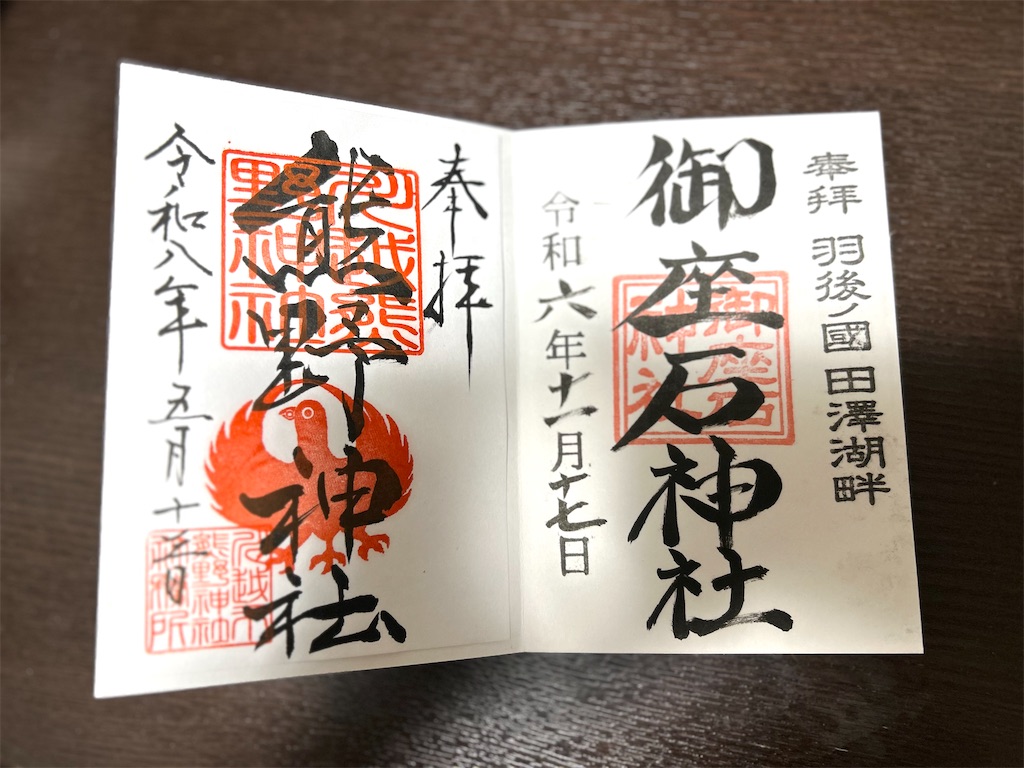 奉拝 羽後ノ國 田澤湖畔
御座石神社
御座石
神社
令和六年十一月十七日
奉拝
熊野神社
川越熊
野神社
令和八年五月十日
川越
熊野神社